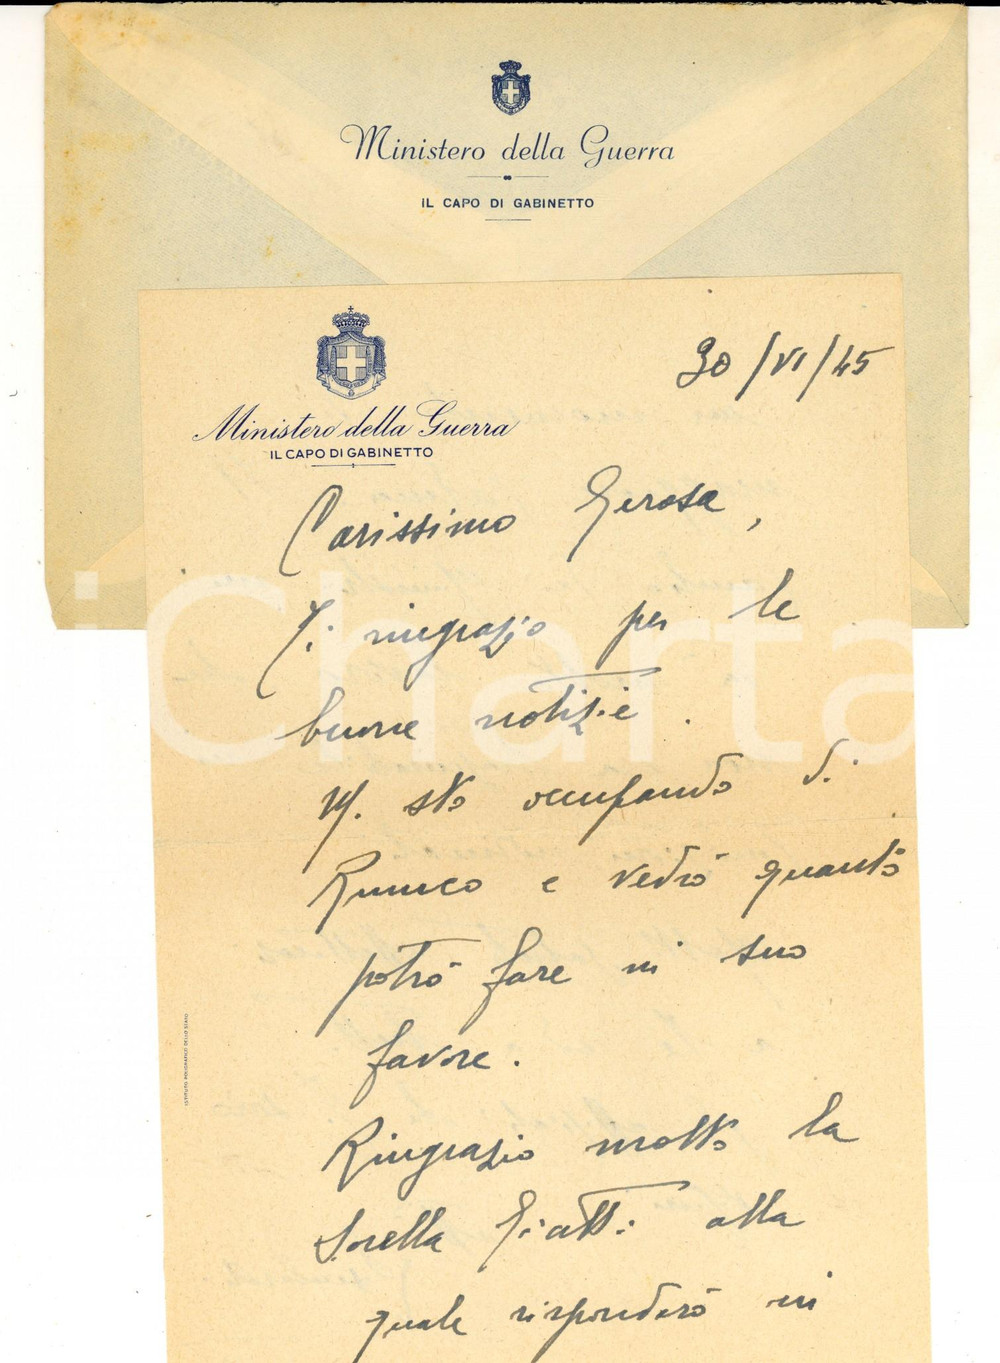 Ministero della Guerra
IL CAPO DI GABINETTO
Ministero della Guerra
IL CAPO DI GABINETTO
30/VI/45
Carissimo Gerosa,
Ti ringrazio per le
buone notizie.
Mi sto occupando di
e vedrò quanto
potrò fare in suo
favore.
Ringrazio molto la
Sorella alla
quale risponderò in
ISTITUTO POLIGRAFICO DELLO STATO
iCharta